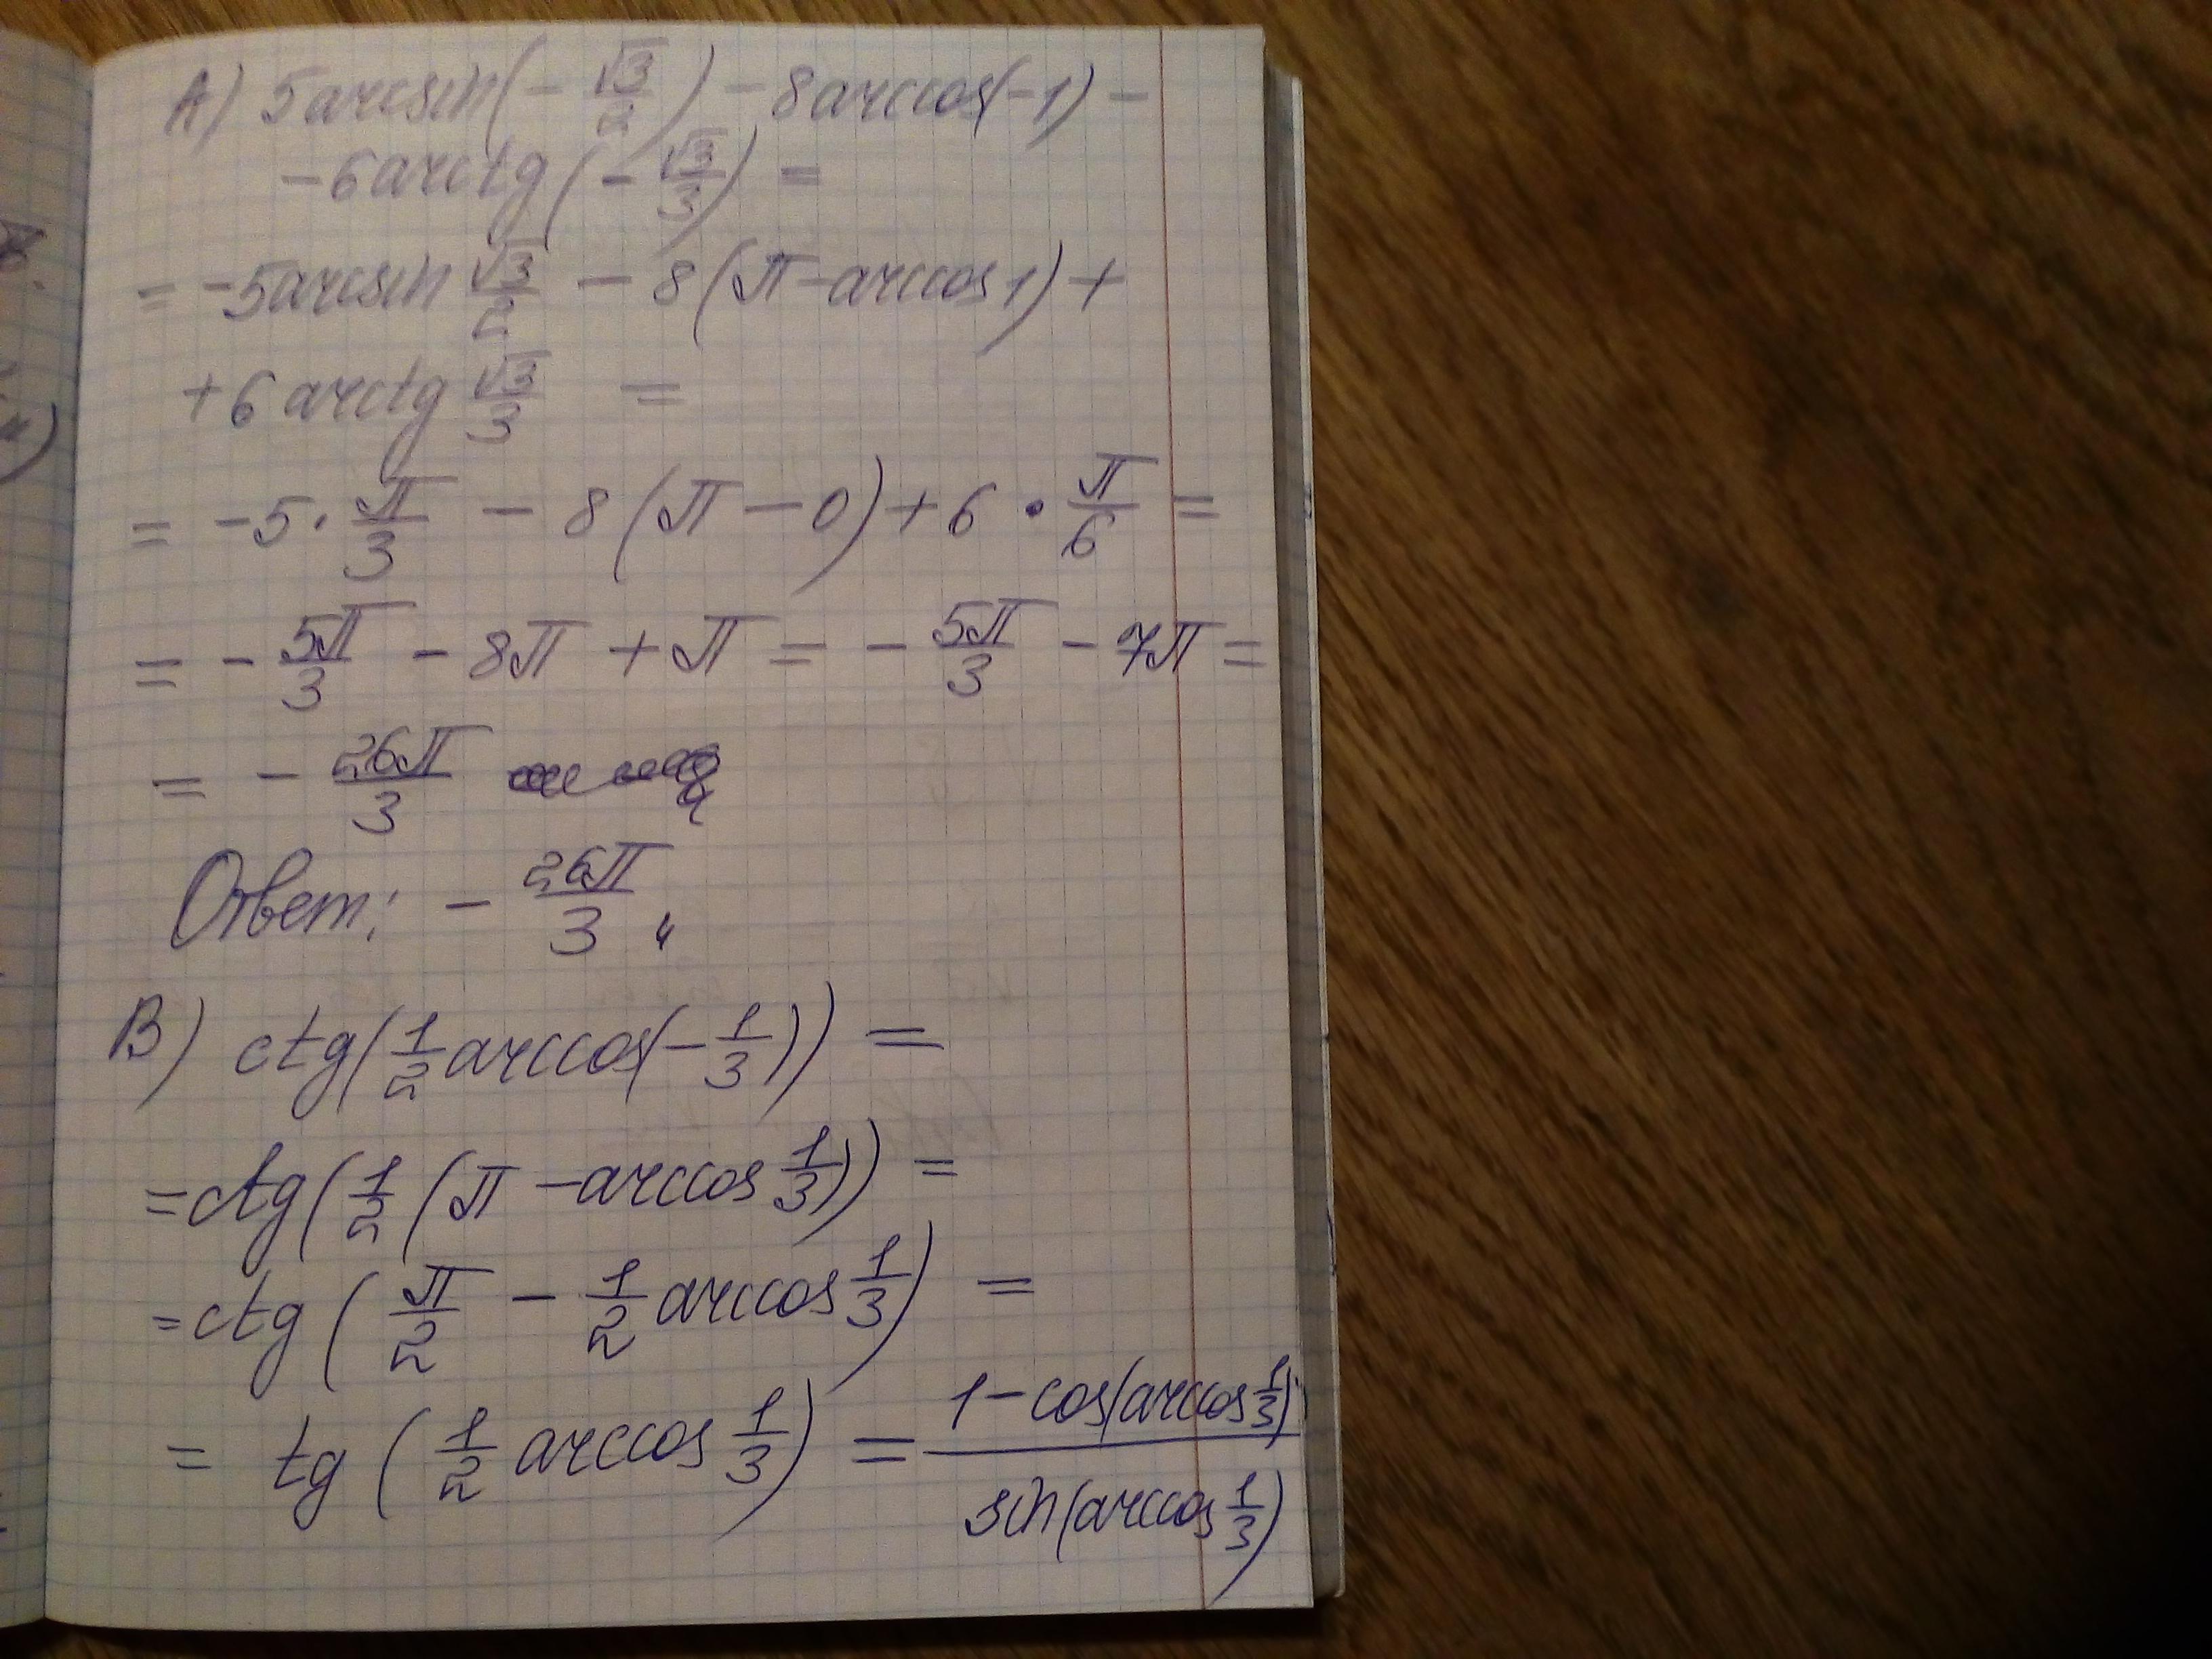 А) 5arcsin(-√3/2) - 8arccos(-1) -
- 6arctg(-√3/3) =
= -5arcsin √3/2 - 8(π - arccos 1) +
+ 6 arctg √3/3 =
= -5 · π/3 - 8(π - 0) + 6 · π/6 =
= - 5π/3 - 8π + π = - 5π/3 - 7π =
= - 26π/3
Ответ: - 26π/3.
В) ctg(1/2 arccos(-1/3)) =
= ctg(1/2 (π - arccos 1/3)) =
= ctg (π/2 - 1/2 arccos 1/3) =
= tg (1/2 arccos 1/3) = 1 - cos(arccos 1/3) / sin(arccos 1/3)